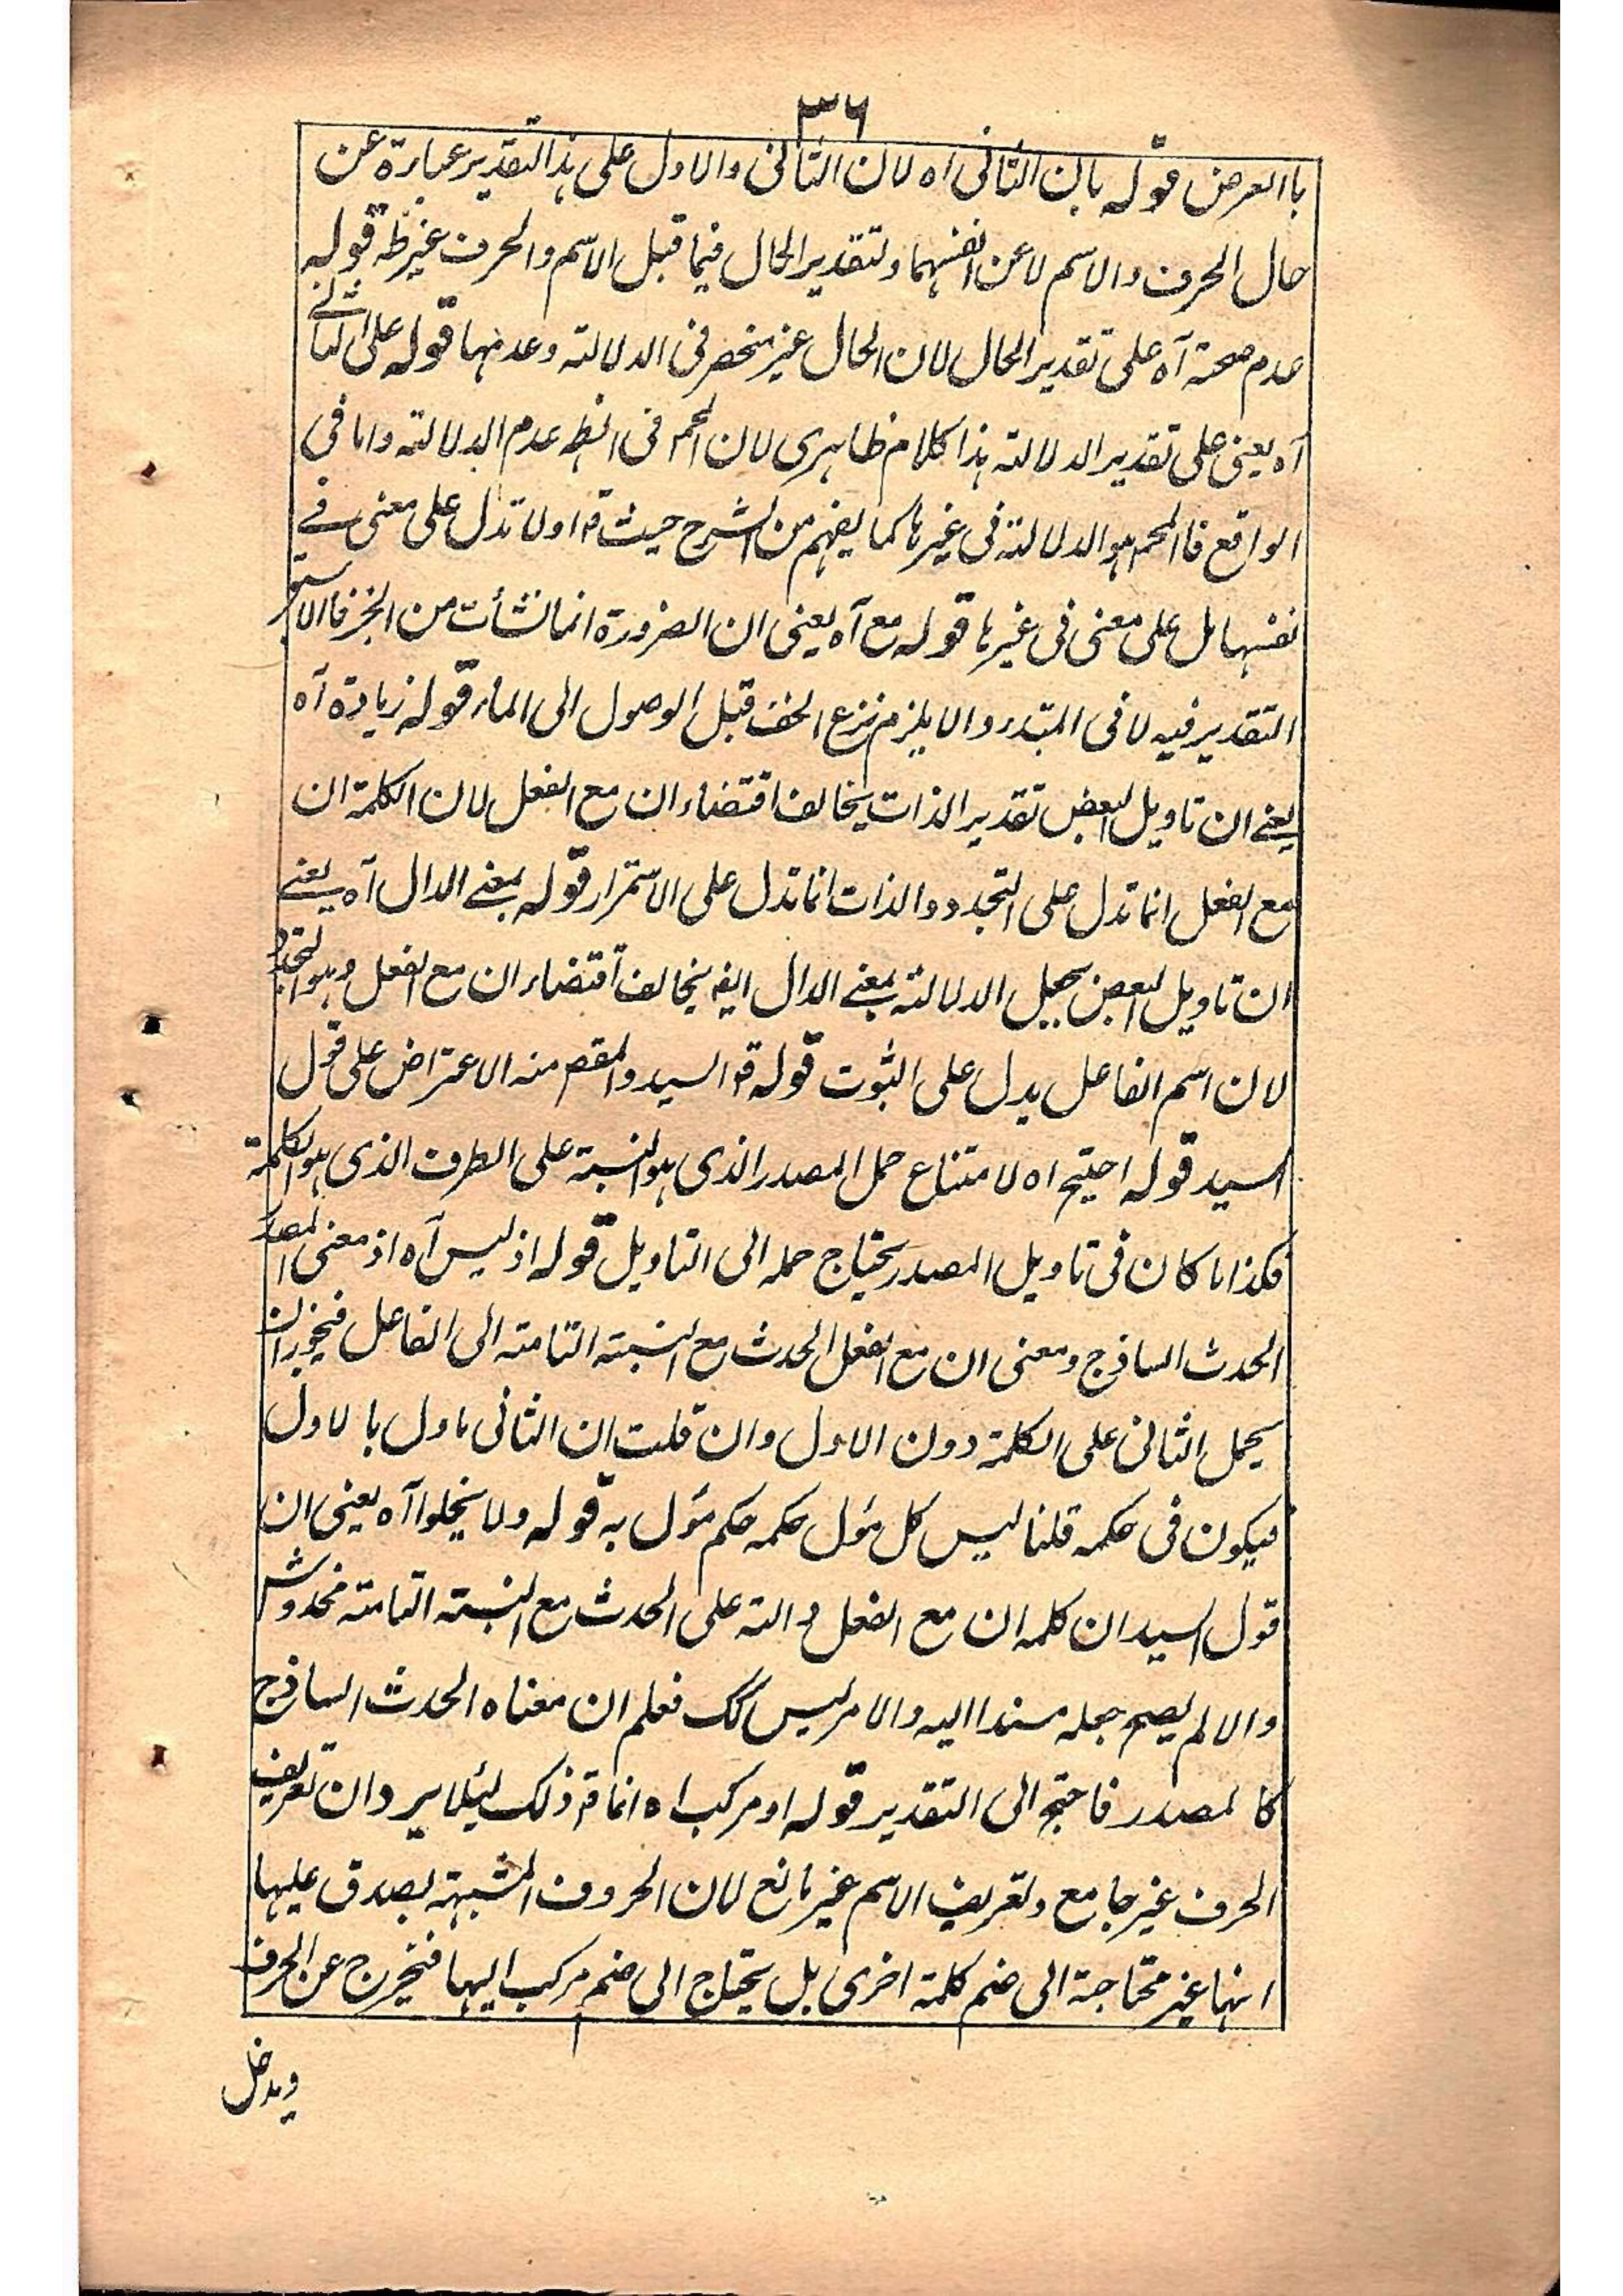 ٣٦
باالعرض قوله بان الثانى اه لان الثانى والاول على هذا التقدير عبارة عن
حال الحرف والاسم لا عن انفسهما وتقدير الحال فيما قبل الاسم والحرف غير ظه قوله
عدم صحته آه على تقدير الحال لان الحال غير منحصر فى الدلالته وعدمها قوله على الثانے
آه يعنى على تقدير الدلالته هذا كلام ظاهرى لان المحم فى الظه عدم الدلالته واما فى
الواقع فاالمحم هو الدلالته فى غيرها كما يفهم من الشرح حيث قه اولا تدل على معنى فے
نفسها بل على معنى فى غيرها قوله مع آه يعنى ان الضرورة انما نشأت من الخبر فاالاستر
التقدير فيه لا فى المبتدء والا يلزم نزع الخف قبل الوصول الى الماء قوله زيادة آه
يعنے ان تاويل البعض تقدير الذات يخالف اقتضاء ان مع الفعل لان الكلمة ان
مع الفعل انما تدل على التجدد والذات انما تدل على الاستمرار قوله بمعنے الدال آه يعنے
ان تاويل البعض بجعل الدلالته بمعنے الدال ايضا يخالف اقتضاء ان مع الفعل وهو التجدد
لان اسم الفاعل يدل على الثبوت قوله قه السيد والمقصم منه الاعتراض على قول
السيد قوله احتيج اه لامتناع حمل المصدر الذى هو النسبة على الطرف الذى هو الكلمة
فكذا ما كان فى تاويل المصدر يحتاج حمله الى التاويل قوله اذ ليس آه اذ معنى المصدر
الحدث الساذج ومعنى ان مع الفعل الحدث مع النسبته التامته الى الفاعل فيجوز ان
يحمل الثانى على الكلمة دون الاول وان قلت ان الثانى ماول بالاول
فيكون فى حكمه قلنا ليس كل مؤل حكمه حكم مؤل به قوله ولا يخلوا آه يعنى ان
قول السيد ان كلمه ان مع الفعل دالته على الحدث مع النسبته التامته مخدوش
والا لم يصح جعله مسندا اليه والامر ليس كك فعلم ان معناه الحدث الساذج
كالمصدر فاحتيج الى التقدير قوله او مركب اه انما قه ذلك ليئلا يرد ان تعريف
الحرف غير جامع وتعريف الاسم غير مانع لان الحروف المشبهته يصدق عليها
انها غير محتاجة الى ضم كلمة اخرى بل يحتاج الى ضم مركب اليها فتخرج عن الحرف
ويدخل